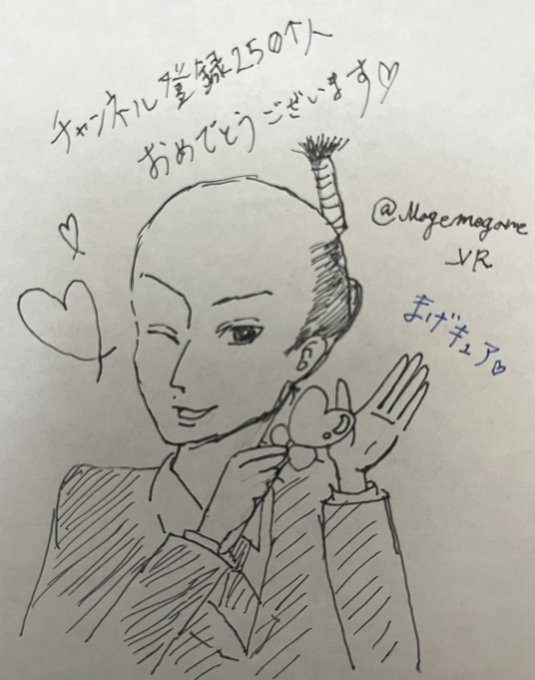 チャンネル登録250↑人
おめでとうございます♡
@Magemagame
_VR
まげキュア♡